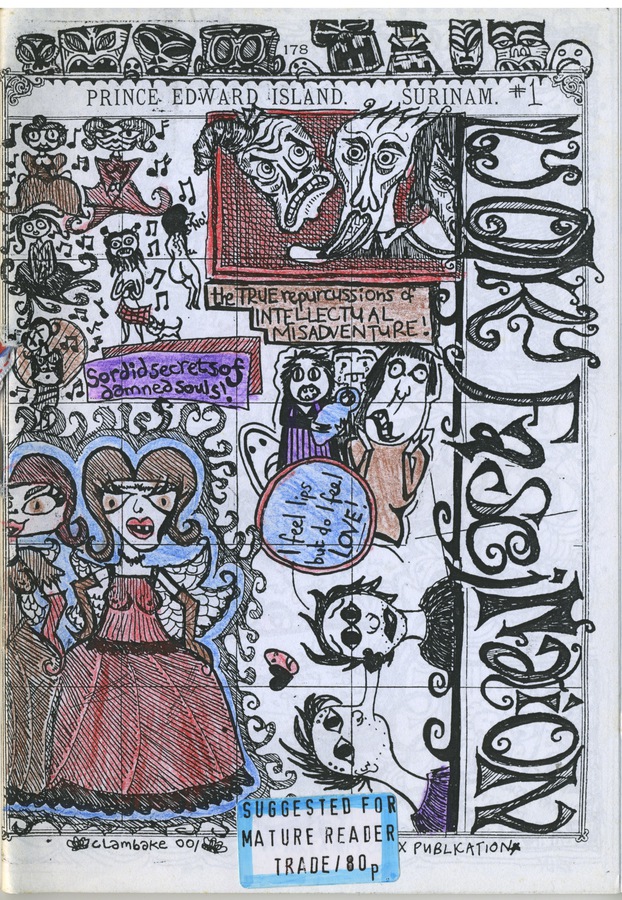 178
PRINCE EDWARD ISLAND. SURINAM. #1
the TRUE repurcussions of
INTELLECTUAL
MISADVENTURE!
Sordid secrets of
damned souls!
I feel lips
but do I feel
LOVE!
SUGGESTED FOR
MATURE READER
TRADE/80p
Clambake 00/
X PUBLICATION